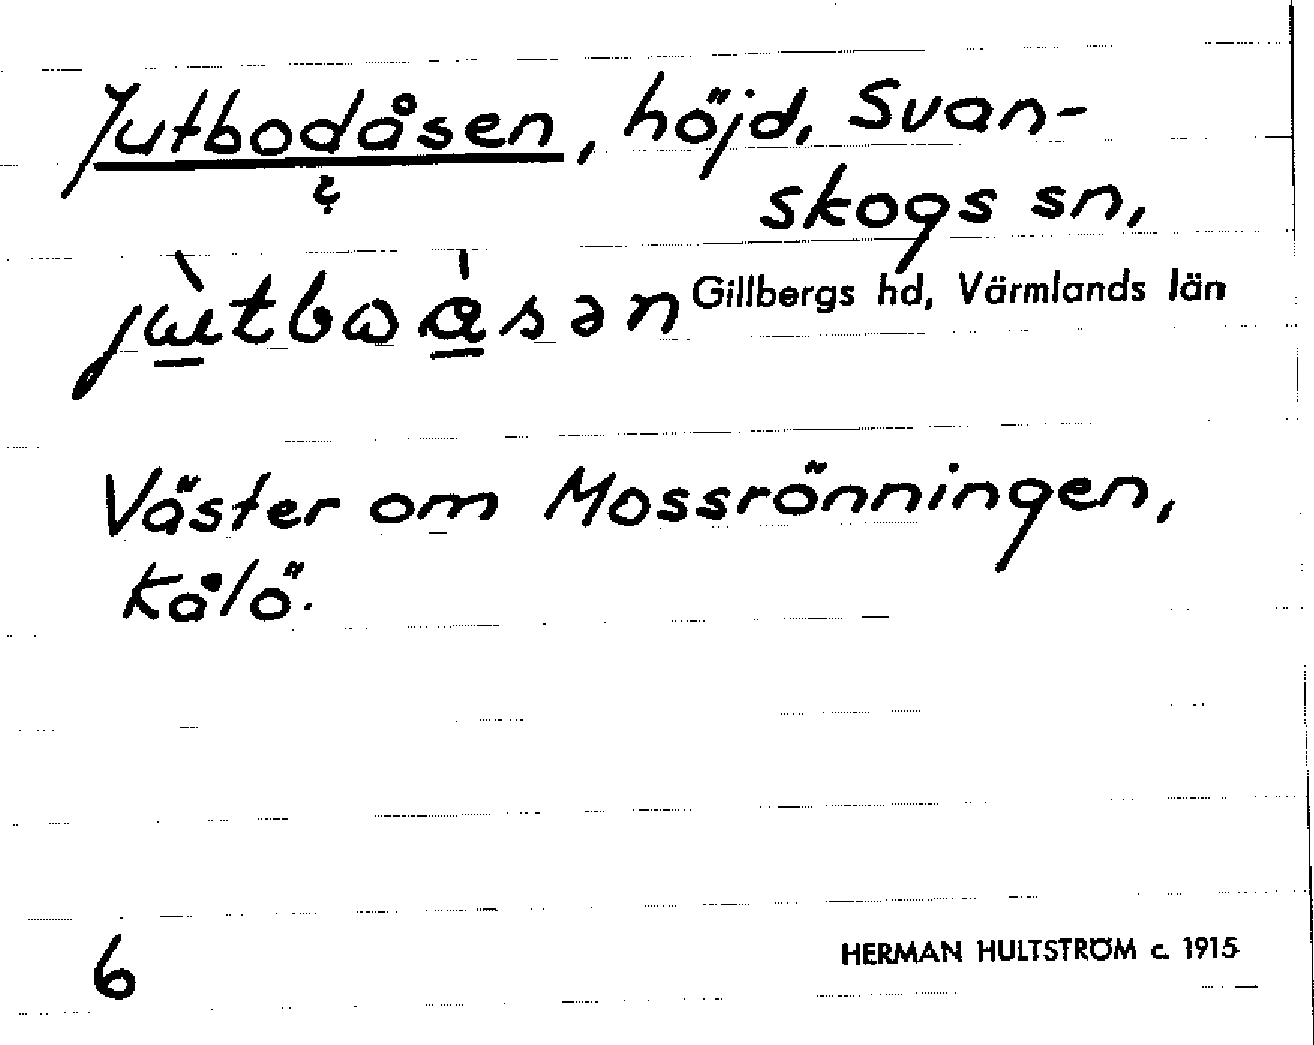 Jutbodåsen, höjd, Svan-
skogs sn,
Gillbergs hd, Värmlands län
Väster om Mossrönningen,
Kålö.
6
HERMAN HULTSTRÖM c. 1915